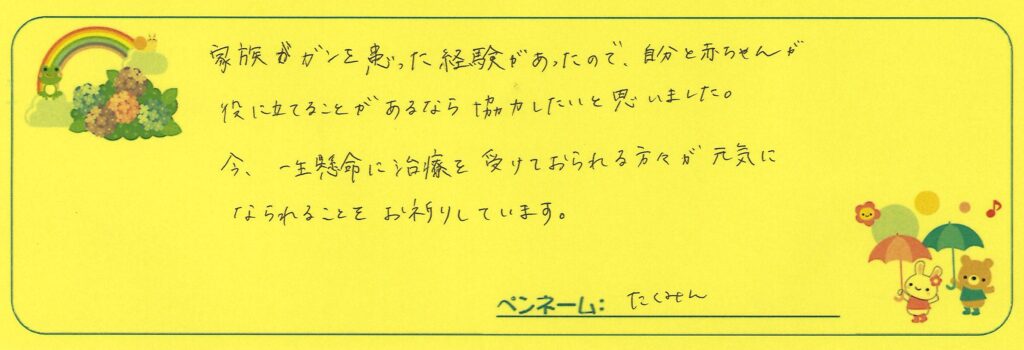 家族がガンを患った経験があったので、自分と赤ちゃんが
役に立てることがあるなら協力したいと思いました。
今、一生懸命に治療を受けておられる方々が元気に
なられることをお祈りしています。
ペンネーム: たくみん